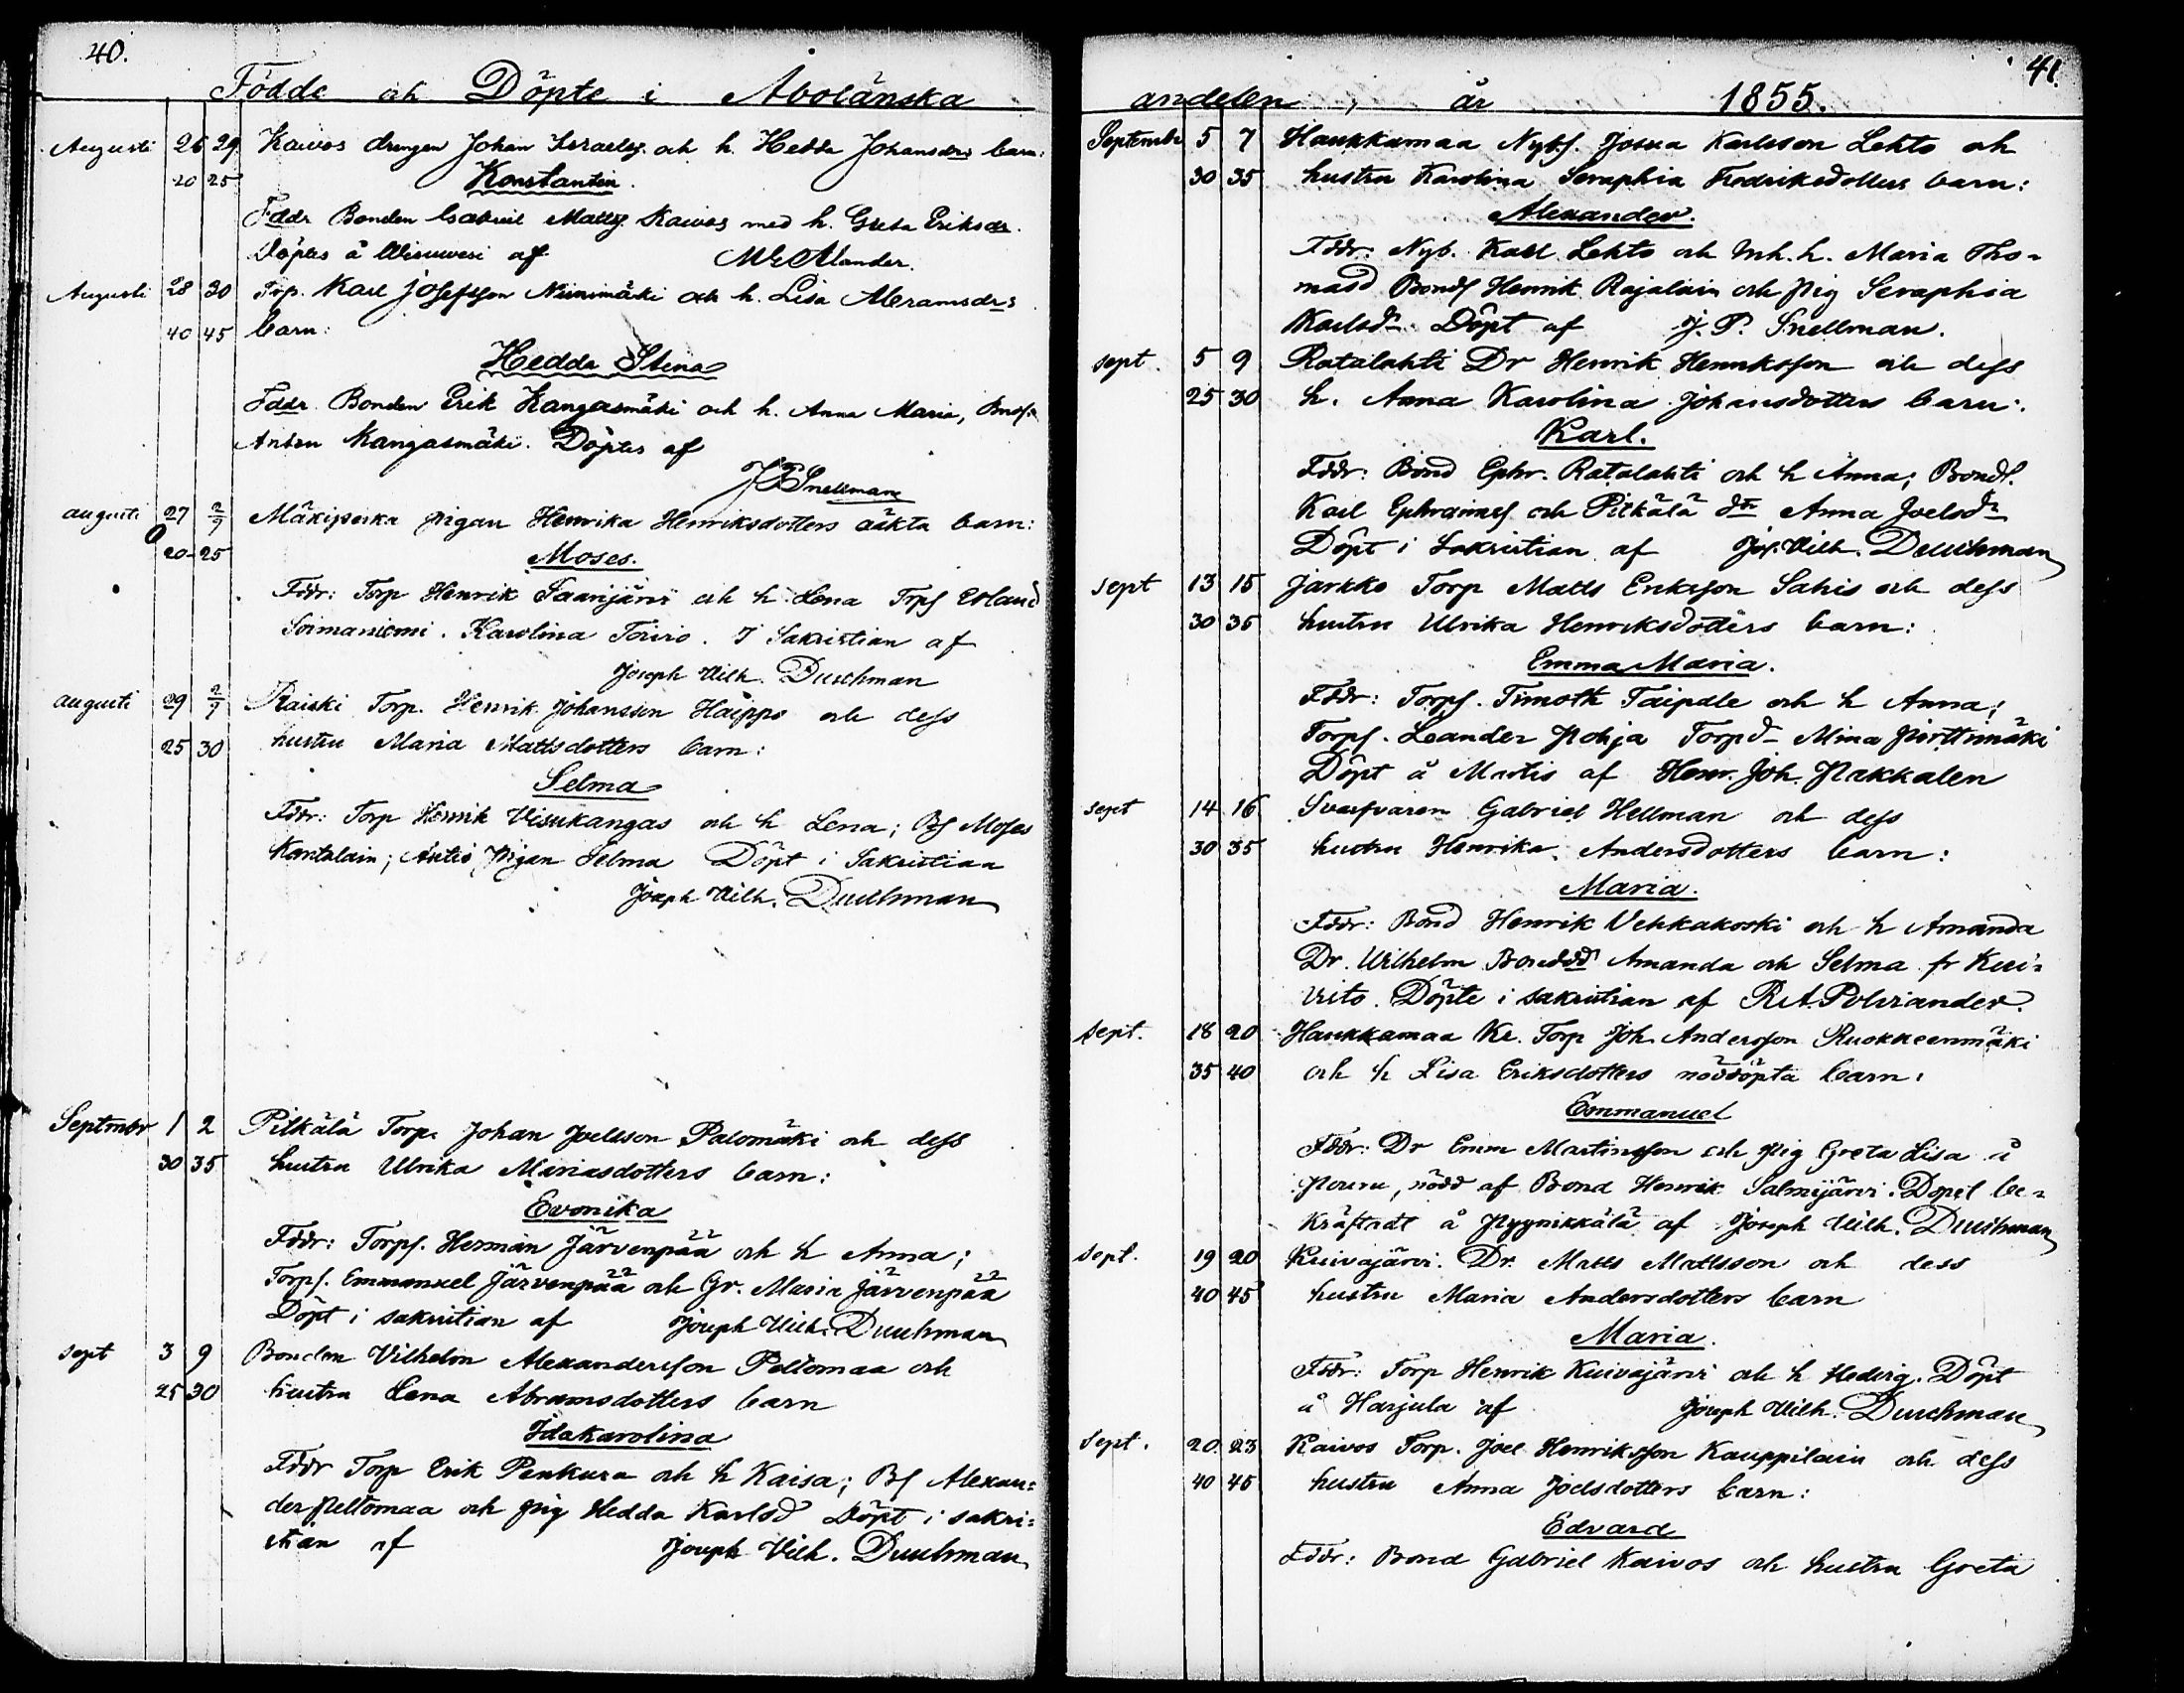 40.
Födde och Döpte i Åbolänska
Augusti 26 29 Kaivos drengen Johan Israelss. och h. Hedda Johansdrs barn:
20 25 Konstantin.
Fddr Bonden Gabriel Mattss. Kaivos med h. Greta Eriksdr.
Döptes å af Alander.
Augusti 28 30 Trp. Karl Josefsson Niinimäki och h. Lisa Abramsdrs
40 45 barn:
Hedda Stina
Fddr. Bonden Erik Kangasmäki och h. Anna Maria,
Anton Kangasmäki. Döptes af
J P Snellman
augusti 27 2/9 Mäkipeska pigan Henrika Henriksdotters oäkta barn:
20 25 Moses.
Fddr: Torp Henrik Saarijärvi och h Lena Trps Erland
Soimaniemi. Karolina Toivio. I Sakristian af
Joseph Wilh. Durchman
augusti 29 2/9 Raiski Torp. Henrik Johansson Haippo och dess
25 30 hustru Maria Mattsdotters barn:
Selma
Fddr: Torp Henrik Visukangas och h Lena; Bs Moses
Kantalain; Antio pigan Selma Döpt i Sakristian
Joseph Wilh. Durchman
Septmbr 1 2 Pitkälä Torp. Johan Joelsson Palomäki och dess
30 35 hustru Ulrika Mariasdotters barn:
Evonika
Fddr: Torps. Herman Järvenpää och h Anna;
Torps. Emmanuel Järvenpää och Gr. Maria Järvenpää
Döpt i sakristian af Joseph Wilh. Durchman
sept 3 9 Bonden Vilhelm Alexandersson Peltomaa och
25 30 hustru Lena Abramsdotters barn
Idakarolina
Fddr Torp Erik Penkura och h Kaisa; Bs Alexan=
der Peltomaa och pig Hedda Karlsd Döpt i sakri=
stian af Joseph Vilh. Durchman
41.
andelen, år 1855.
Septembr 5 7 Haukkamaa Nybs. Josua Karlsson Lehto och
30 35 hustru Karolina Seraphia Fredriksdotters barn:
Alexander.
Fddr: Nyb. Karl Lehto och h. Maria Tho=
masd Bonds Henrik Rajalain och pig Seraphia
Karlsdr. Döpt af J. P. Snellman.
sept. 5 9 Ratalahti Dr Henrik Henriksson och dess
25 30 h. Anna Karolina Johansdotters barn:
Karl.
Fddr: Bond Ephr. Ratalahti och h Anna; Bonds.
Karl Ephraims och Pitkälä dr Anna Joelsdr
Döpt i Sakristian af Jos. Wilh. Durchman
sept 13 15 Jarkko Torp Matts Eriksson Sahis och dess
30 35 hustru Ulrika Henriksdotters barn:
Emma Maria.
Fddr: Torps. Timoth Taipale och h Anna;
Torps. Leander Pohja Torpd Mina Pirttimäki
Döpt å Martis af Henr. Joh. Pakkalen
sept 14 16 Svarfvaren Gabriel Hellman och dess
30 35 hustru Henrika Andersdotters barn:
Maria.
Fddr: Bond Henrik Vehkakoski och h Amanda
Dr. Wilhelm Amanda och Selma fr Keri=
vito. Döpte i sakristian af R.A. Polviander.
sept. 18 20 Haukkamaa Kr. Torp Joh. Andersson Ruokkeenmäki
35 40 och h Lisa Eriksdotters nöddöpta barn:
Emmanuel
Fddr: Dr Emm Martinsson och pig Greta Lisa å
Pouru, nödd af Bond Henrik Salmijärvi. Dopet be=
kräftadt å Pyynikkälä af Joseph Wilh. Durchman
sept. 19 20 Kuivajärvi. Dr. Matts Mattsson och dess
40 45 hustru Maria Andersdotters barn
Maria.
Fddr: Torp Henrik Kuivajärvi och h Hedvig. Döpt
å Harjula af Joseph Wilh. Durchman
sept. 20 23 Kaivos Torp. Joel Henriksson Kauppilain och dess
40 45 hustru Anna Joelsdotters barn:
Edvard
Fddr: Bond Gabriel Kaivos och hustru Greta